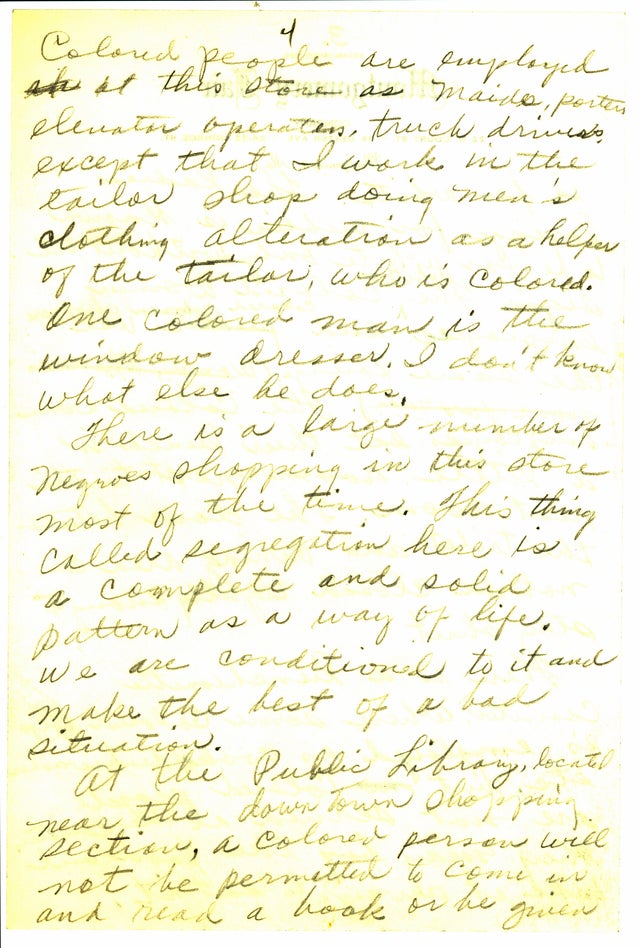 4
Colored people are employed
at this store as maids, porters
elevator operators, truck drivers,
except that I work in the
tailor shop doing men's
clothing alteration as a helper
of the tailor, who is colored.
One colored man is the
window dresser. I don't know
what else he does.
There is a large number of
Negroes shopping in this store
most of the time. This thing
called segregation here is
a complete and solid
pattern as a way of life.
We are conditioned to it and
make the best of a bad
situation.
At the Public Library, located
near the down town shopping
section, a colored person will
not be permitted to come in
and read a book or be given